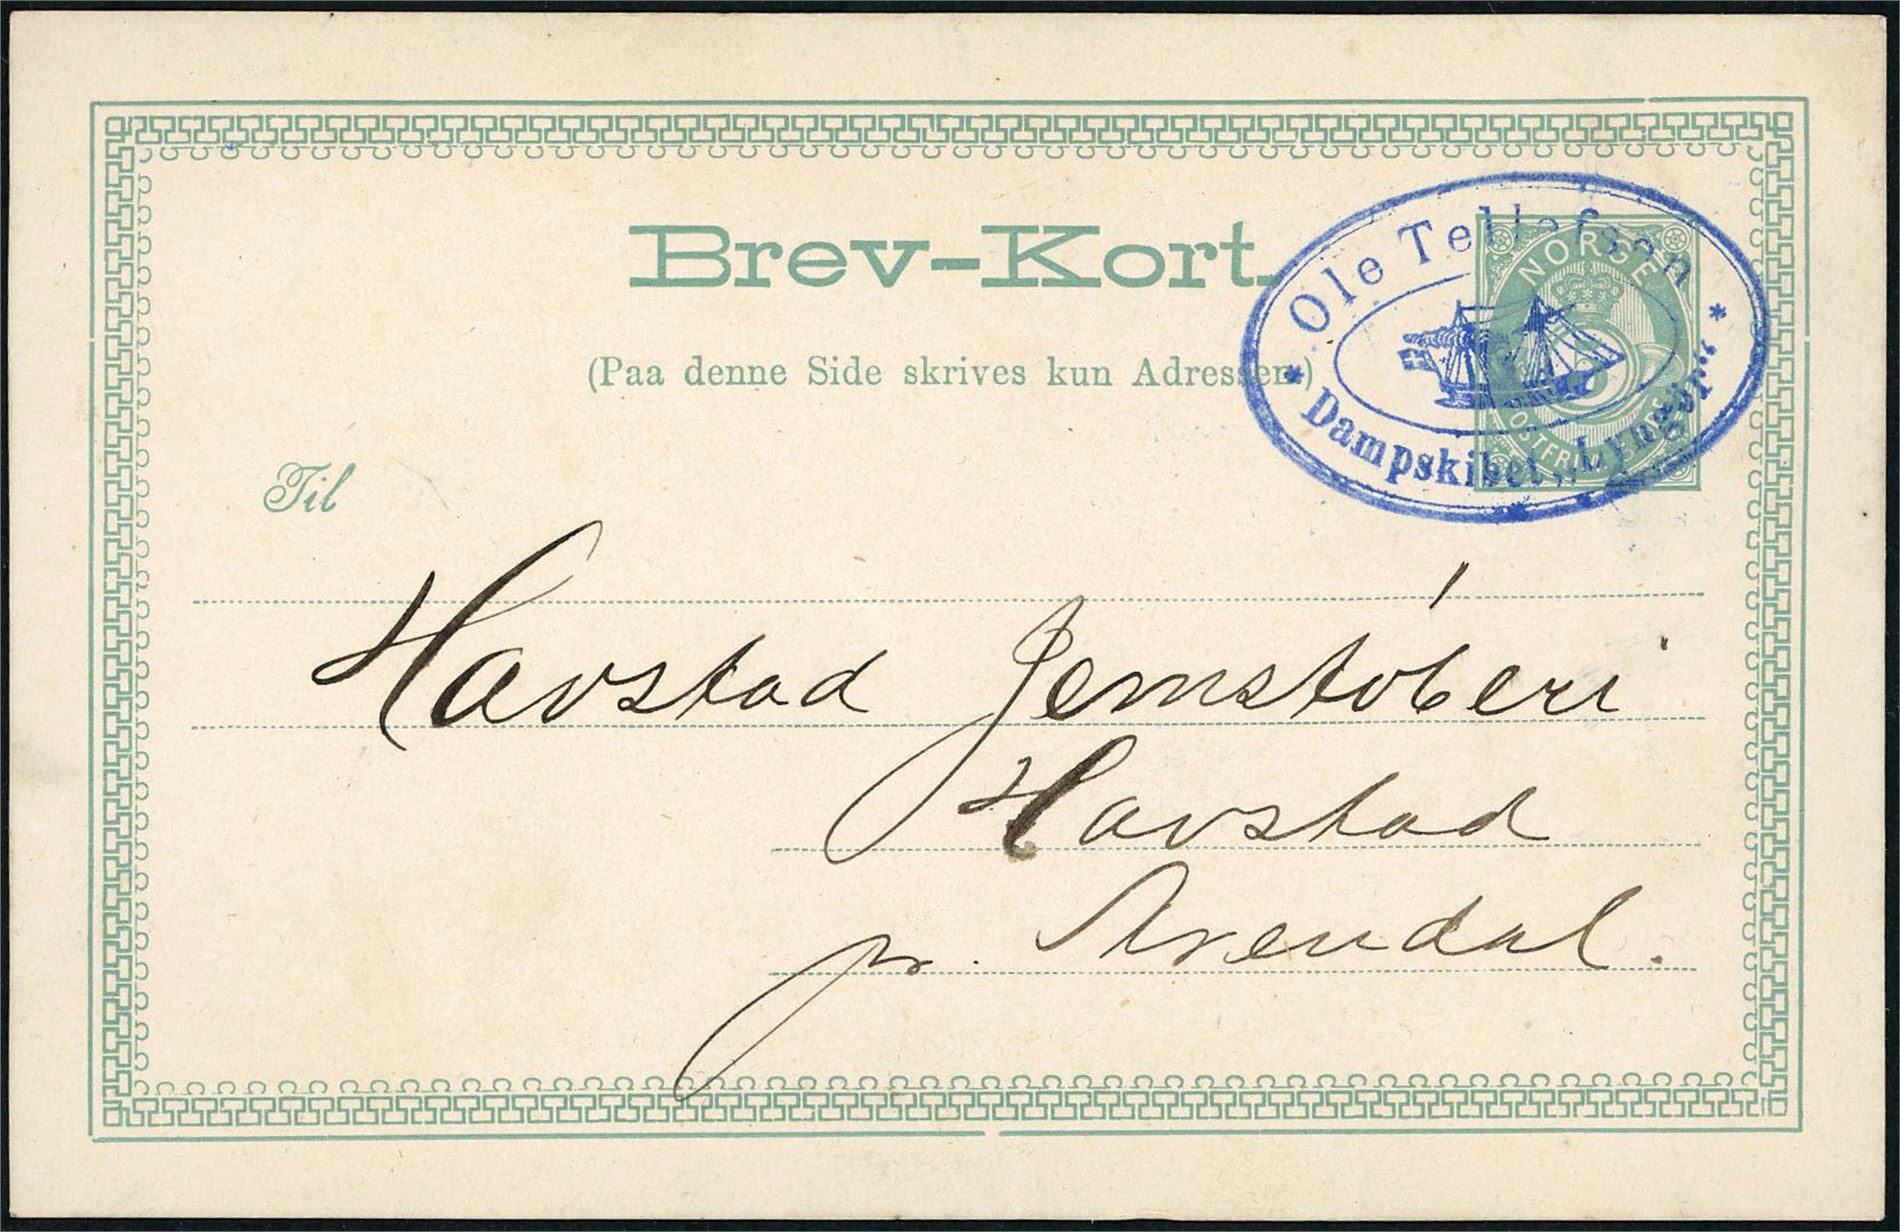 Brev-Kort.
(Paa denne Side skrives kun Adressen.)
* Ole Tellefsen *
Dampskibet „Lyngør“
NORGE
POSTFRIM
Til
Havstad Jernstøberi
Havstad
pr. Arendal.